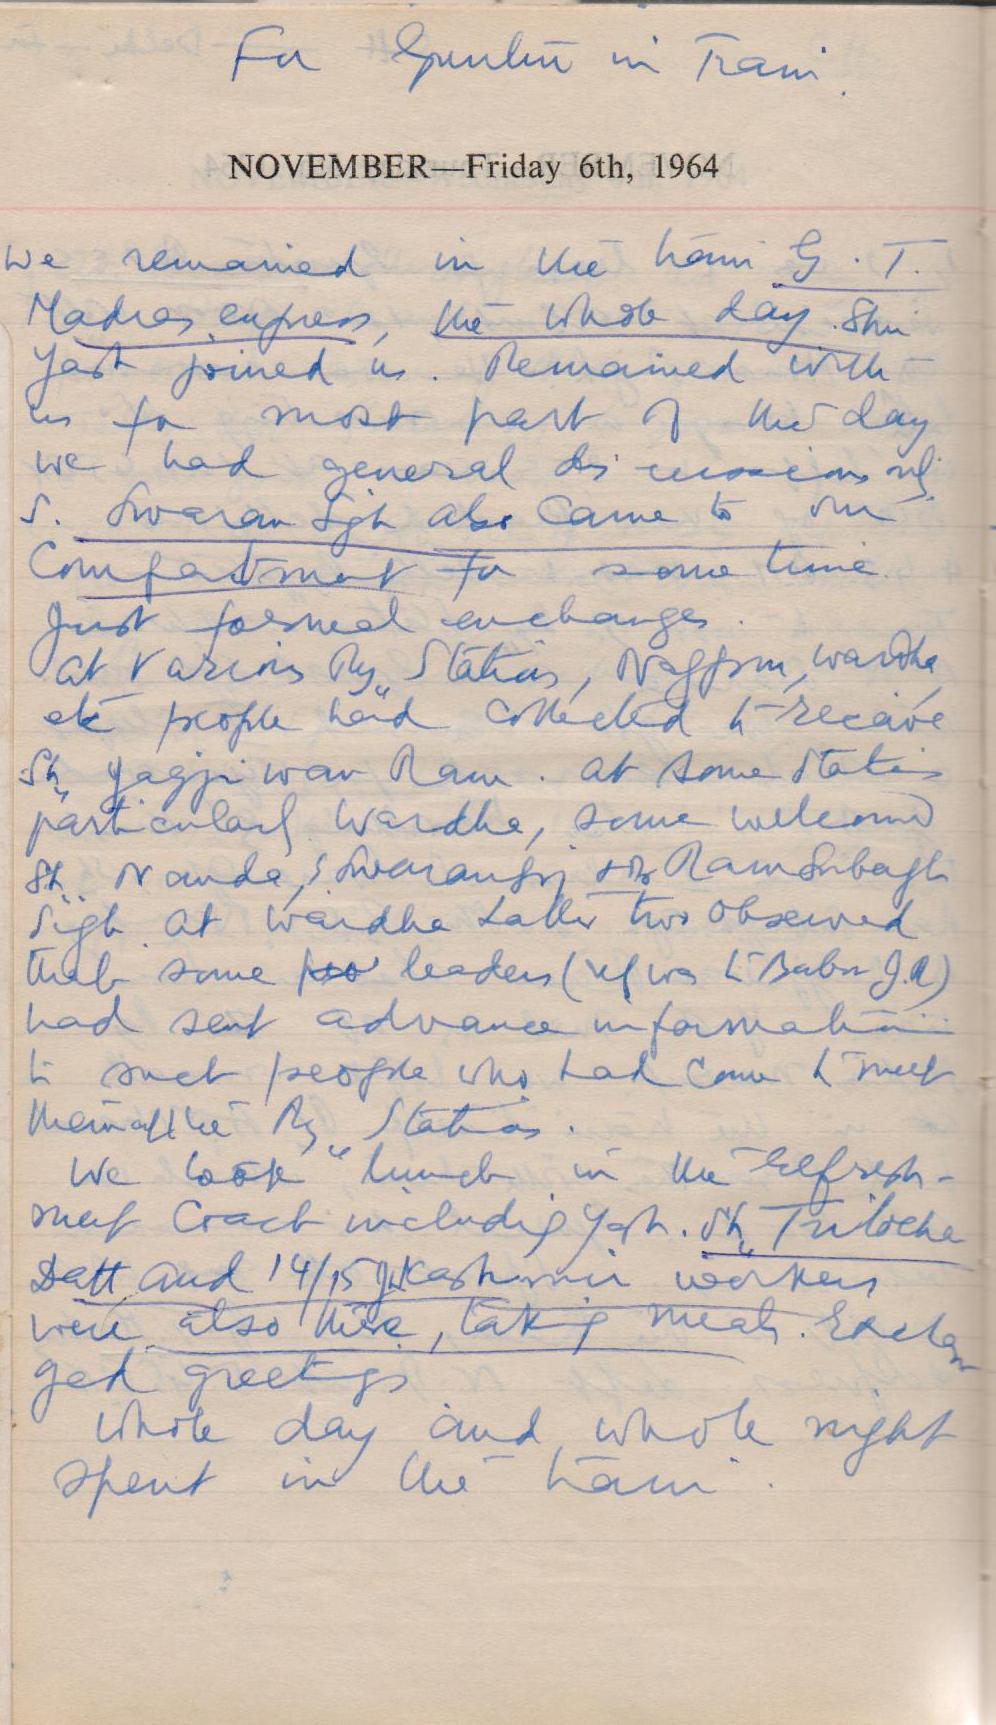 For Guntur in Train.
NOVEMBER—Friday 6th, 1964
We remained in the train G. T.
Madras express, the whole day. Shri
Yash joined us. Remained with
us for most part of the day
we had general discussions only.
S. Swaran Sigh also came to our
Compartment for some time.
Just formal exchanges.
At various Rly Stations, Nagpur, Wardha
etc people had collected to receive
Sh. Jagjiwan Ram. At some Stations
particularly Wardha, some welcomed
Sh. Nanda, S. Swaransgh Ram Subagh
Sigh. At Wardha Latter two observed
that some leaders (ref was to Babu J.R)
had sent advance information
to such people who had come to meet
them at the Rly Stations.
We took lunch in the refresh-
ment Coach including Yash. Sh. Trilocha
Datt and 14/15 J.Kashmir workers
were also there, taking meals. Exchan
ged greetings
Whole day and whole night
spent in the train.